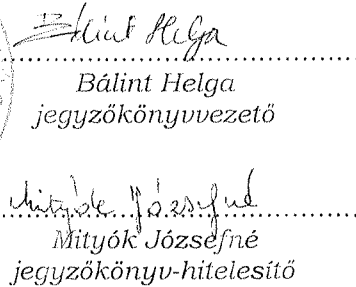 Bálint Helga
Bálint Helga
jegyzőkönyvvezető
Mityók Józsefné
Mityók Józsefné
jegyzőkönyv-hitelesítő